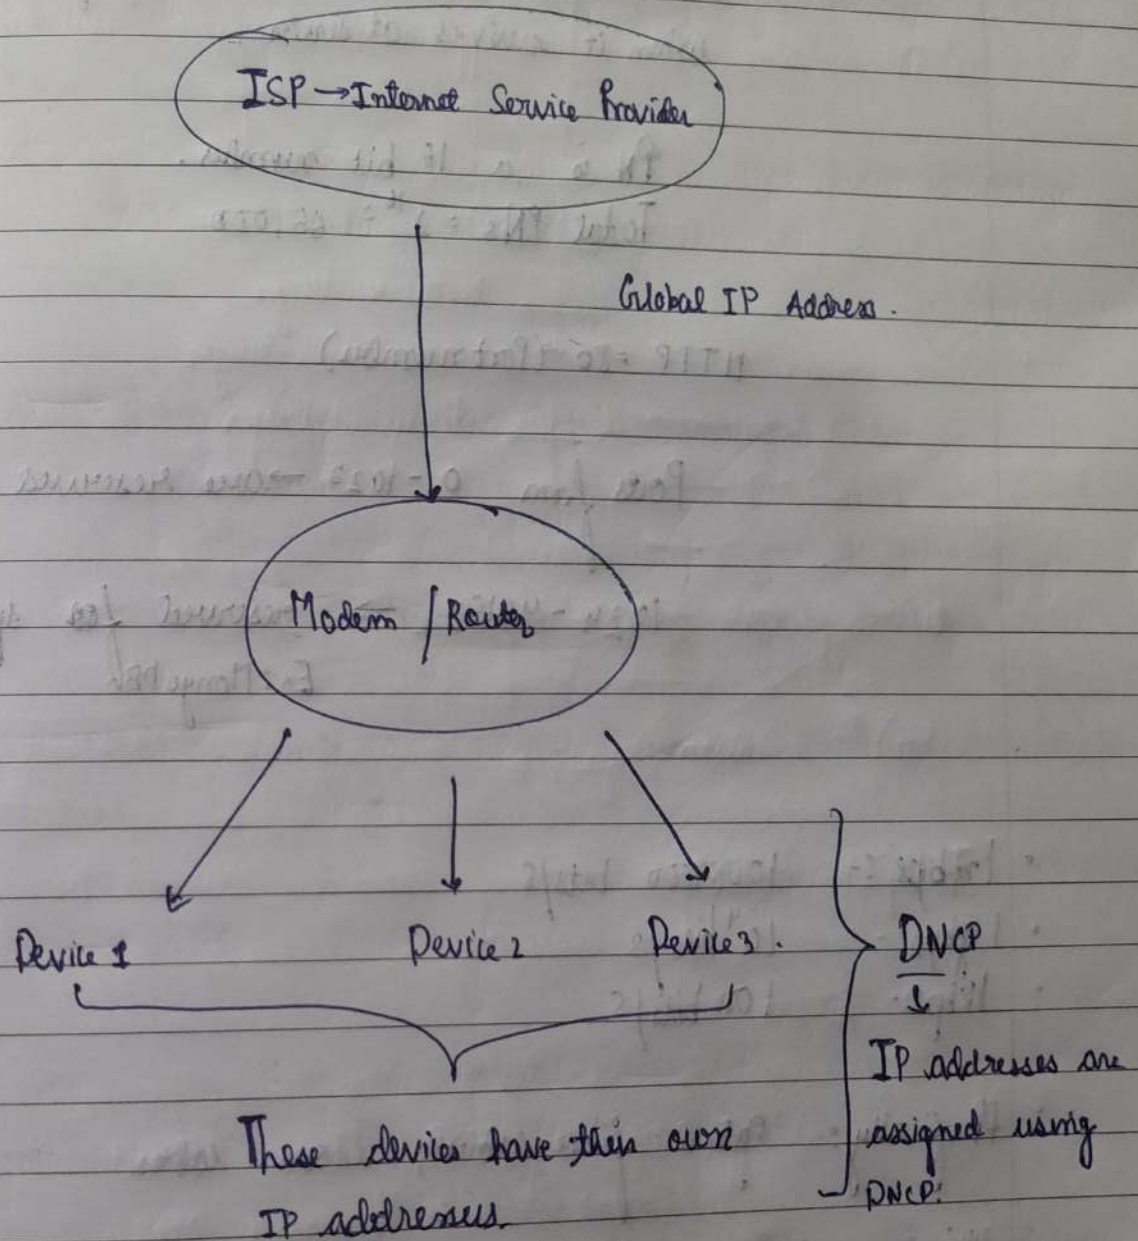 ISP → Internet Service Provider
Global IP Address.
Modem / Router
Device 1
Device 2
Device 3.
DNCP
↓
IP addresses are
assigned using
DNCP.
These devices have their own
IP addresses.